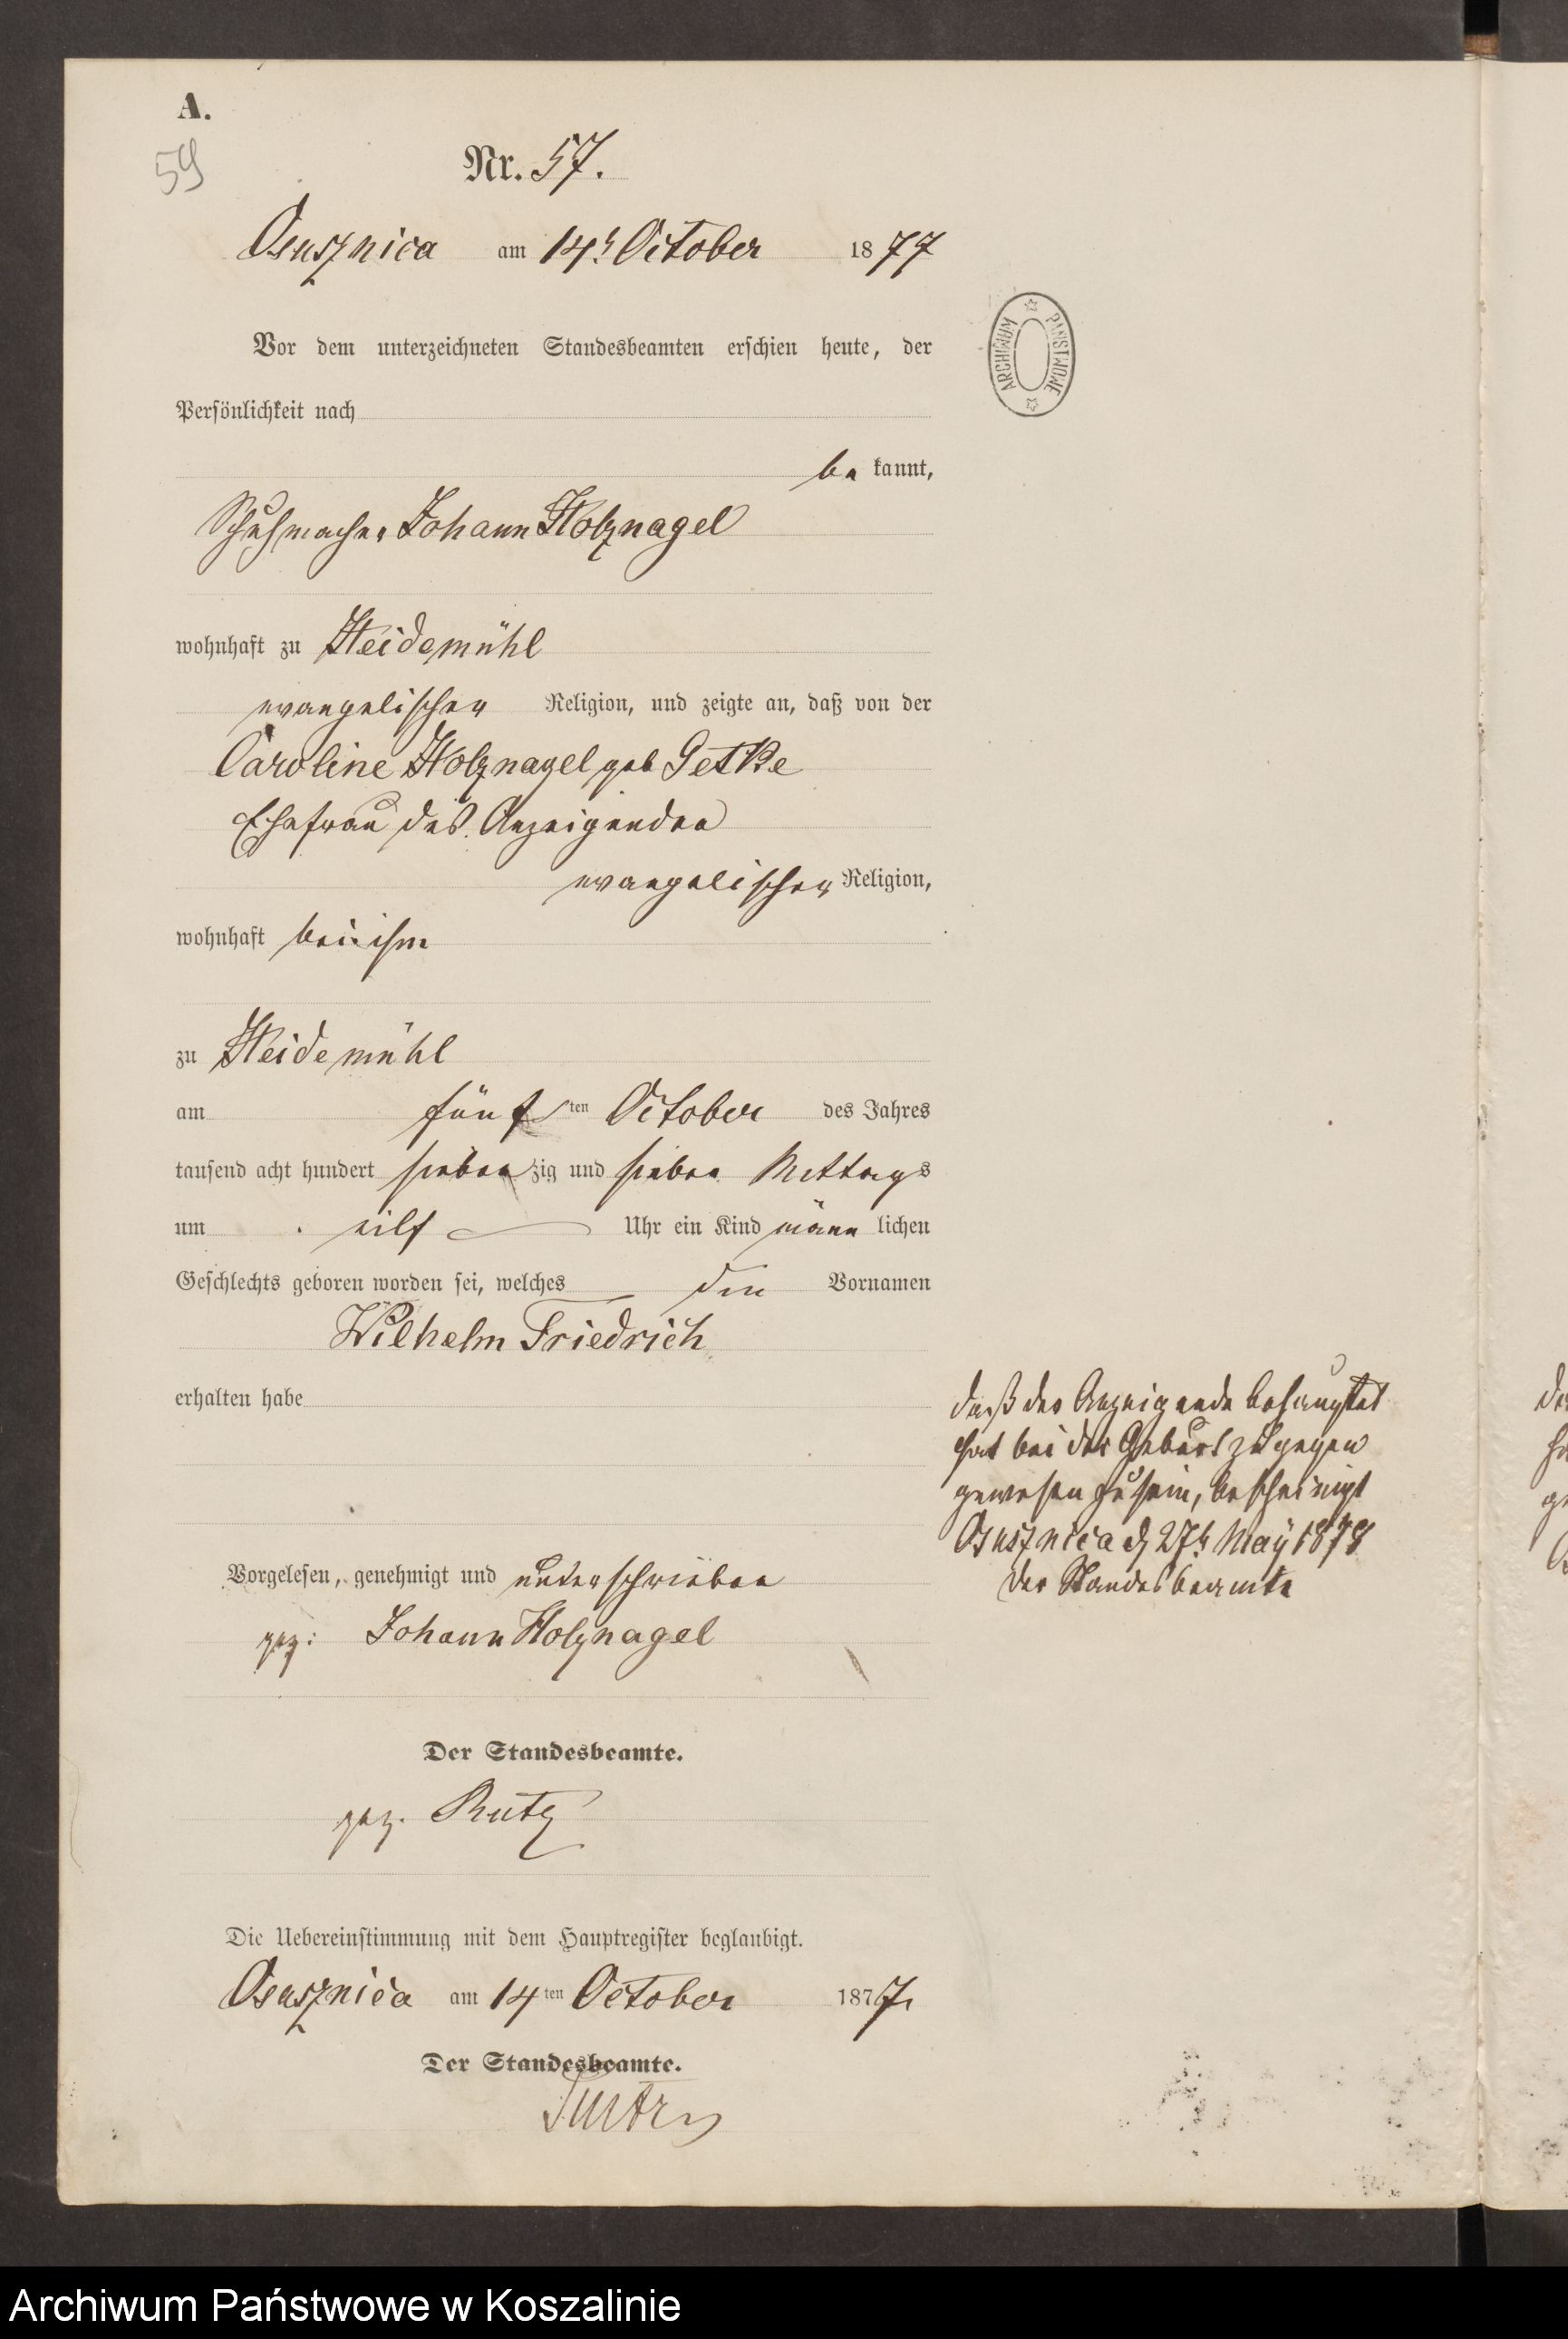 A.
59
Nr. 57.
Osusznica am 14t October 1877
Vor dem unterzeichneten Standesbeamten erschien heute, der
Persönlichkeit nach
be kannt,
Schuhmacher Johann Holznagel
wohnhaft zu Heidemühl
evangelischer Religion, und zeigte an, daß von der
Caroline Holznagel geb Getke
Ehefrau des Anzeigenden
evangelischer Religion,
wohnhaft bei ihm
zu Heidemühl
am fünften October des Jahres
tausend acht hundert siebenzig und sieben Mittags
um eilf Uhr ein Kind männlichen
Geschlechts geboren worden sei, welches den Vornamen
Wilhelm Friedrich
erhalten habe
daß der Anzeigende behauptet
hat bei der Geburt zugegen
gewesen zu sein, bescheinigt
Osusznica d 27t May 1878
Der Standesbeamte
Vorgelesen, genehmigt und unterschrieben
gez: Johann Holznagel
Der Standesbeamte.
gez. Rutz
Die Uebereinstimmung mit dem Hauptregister beglaubigt.
Osusznica am 14ten October 1877
Der Standesbeamte.
ARCHIWUM PAŃSTWOWE
Archiwum Państwowe w Koszalinie